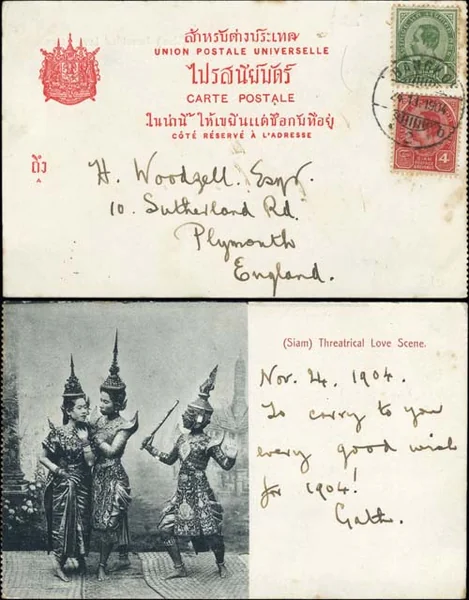 สำหรับต่างประเทศ
UNION POSTALE UNIVERSELLE
ไปรสนียบัตร์
CARTE POSTALE
ในน่านี้ ให้เขียนแต่ชื่อกับที่อยู่
CÔTÉ RÉSERVÉ À L'ADRESSE
ถึง
A
BANGKOK
1904
SIAM
4
H. Woodzell. Esqr.
10. Sutherland Rd.
Plymouth
England.
(Siam) Threatrical Love Scene.
Nov. 24. 1904.
To carry to you
every good wish
for 1904!